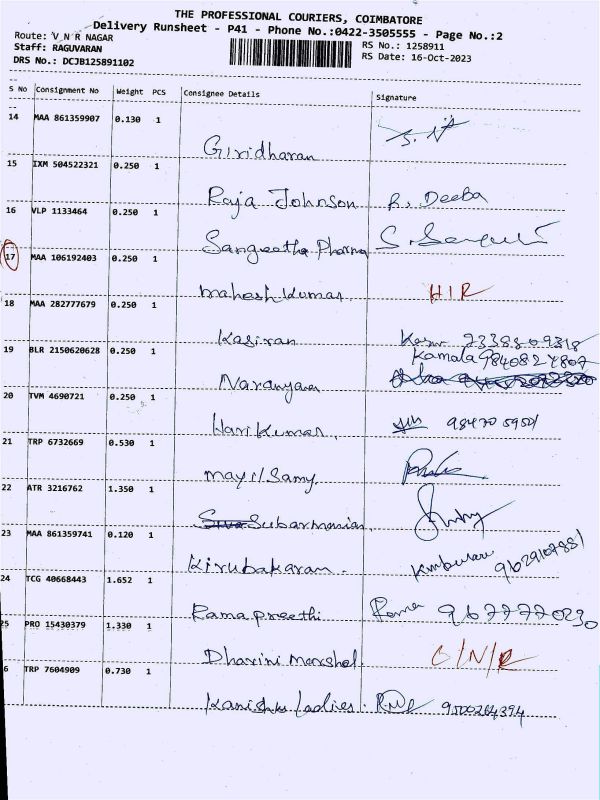 THE PROFESSIONAL COURIERS, COIMBATORE
Delivery Runsheet - P41 - Phone No.:0422-3505555 - Page No.:2
Route: V N R NAGAR
RS No.: 1258911
Staff: RAGUVARAN
RS Date: 16-Oct-2023
DRS No.: DCJB125891102
S No Consignment No Weight PCS Consignee Details Signature
14 MAA 861359907 0.130 1
Giridharan
15 IXM 504522321 0.250 1
Raja Johnson R. Deeba
16 VLP 1133464 0.250 1
Sangeetha Pharma
17 MAA 106192403 0.250 1
Mahesh Kumar. HIR
18 MAA 282777679 0.250 1
Kasiran
19 BLR 2150620628 0.250 1
Kamala 9840824807
Narayanan
20 TVM 4690721 0.250 1
Hari Kumar.
21 TRP 6732669 0.530 1
Mayil Samy
22 ATR 3216762 1.350 1
Subarmanian.
23 MAA 861359741 0.120 1
Kirubakaran. 9629107881
24 TCG 40668443 1.652 1
Rama preethi Rama 9677770230
25 PRO 15430379 1.330 1
Dharini Marshal.
6 TRP 7604909 0.730 1
Kanishka Ladies. 9500264394